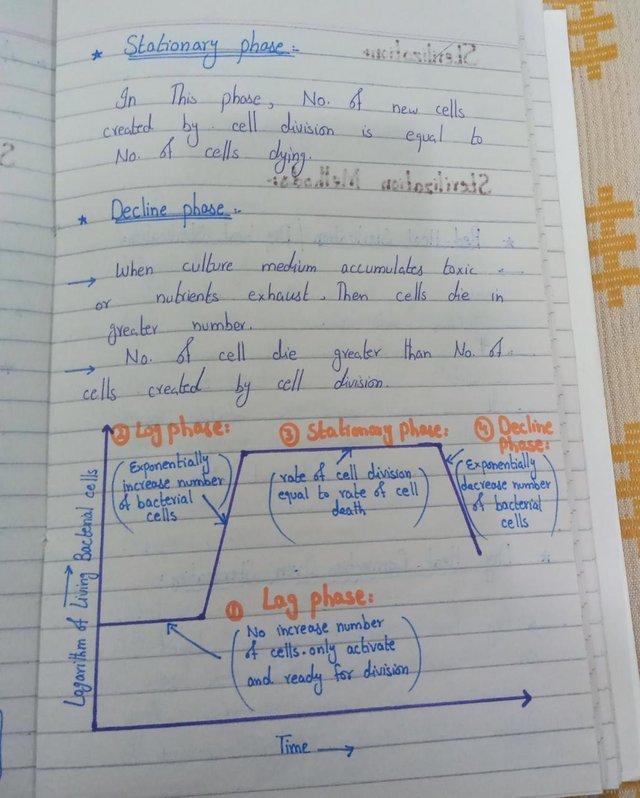 * Stationary phase:-
In This phase, No. of new cells
created by cell division is equal to
No. of cells dying.
* Decline phase:-
→ When culture medium accumulates toxic
or nutrients exhaust. Then cells die in
greater number.
→ No. of cell die greater than No. of
cells created by cell division.
② Log phase:
(Exponentially
increase number
of bacterial
cells)
③ Stationary phase:
(rate of cell division
equal to rate of cell
death)
④ Decline
phase:
(Exponentially
decrease number
of bacterial
cells)
① Lag phase:
(No increase number
of cells. only activate
and ready for division)
Logarithm of Living Bacterial cells
Time →